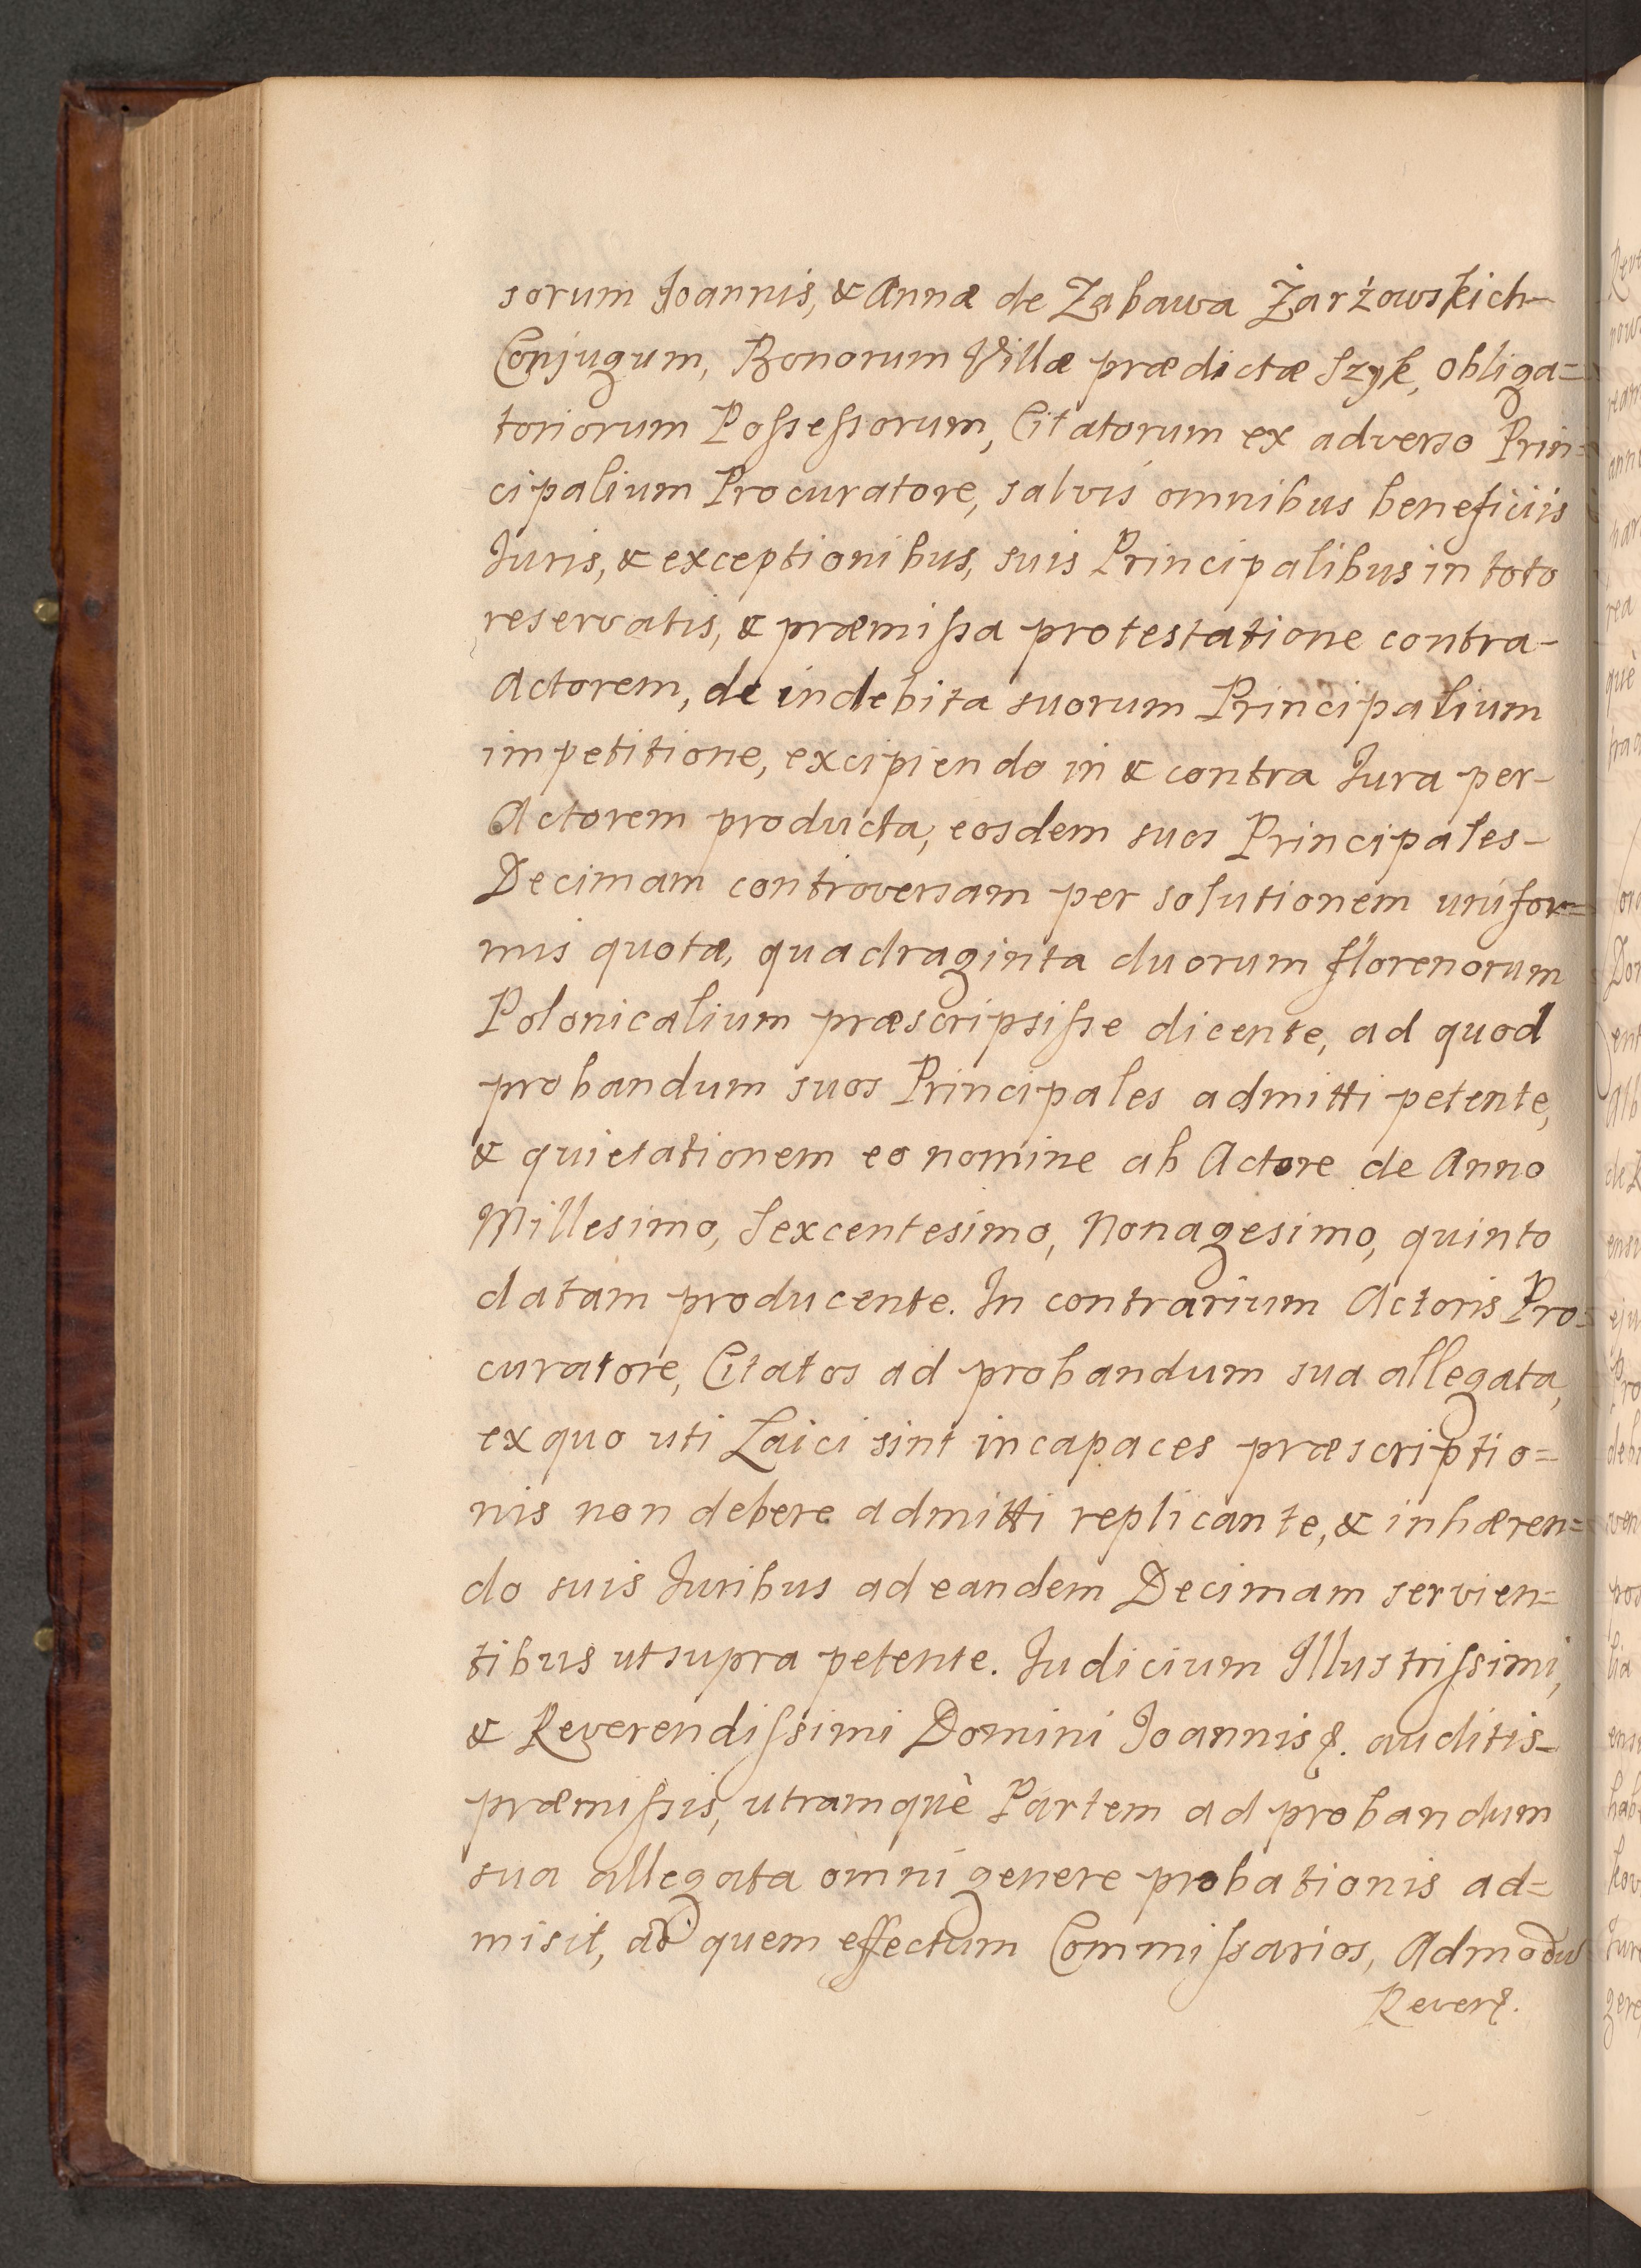 sorum Joannis, & Annæ de Zabawa Żarżowskich-
Conjugum, Bonorum Villæ prædictæ Szyk, obliga=
toriorum Poſseſsorum, Citatorum ex adverso Prin=
cipalium Procuratore, salvis omnibus beneficiis
Juris, & exceptionibus, suis Principalibus in toto
reservatis, & præmiſsa protestatione contra-
Actorem, de indebita suorum Principalium
impetitione, excipiendo in & contra Jura per-
Actorem producta, eosdem suos Principales-
Decimam controversam per solutionem unifor=
mis quotæ, quadraginta duorum florenorum
Polonicalium præscripsiſse dicente, ad quod
probandum suos Principales admitti petente,
& quietationem eo nomine ab Actore de Anno
Millesimo, Sexcentesimo, Nonagesimo, quinto
datam producente. In contrarium Actoris Pro=
curatore, Citatos ad probandum sua allegata,
ex quo uti Laici sint incapaces præscriptio=
nis non debere admitti replicante, & inhæren=
do suis Juribus ad eandem Decimam servien=
tibus ut supra petente. Judicium Illustriſsimi,
& Reverendiſsimi Domini Joannis &. auditis-
præmiſsis, utramquè Partem ad probandum
sua allegata omni genere probationis ad=
misit, ad quem effectum Commiſsarios, Admodu
Rever&.